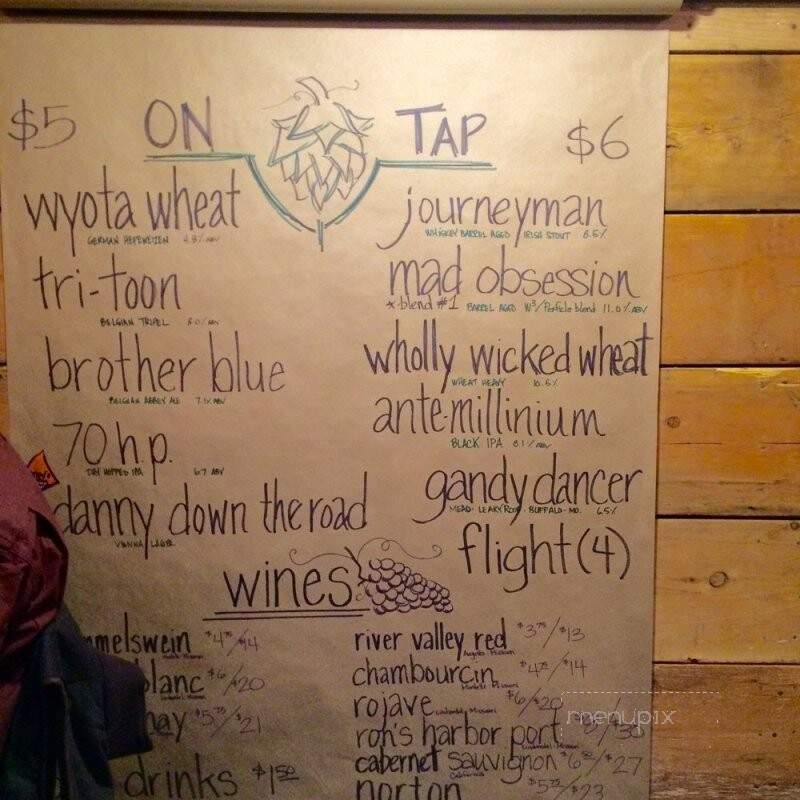 $5 ON TAP $6
wyota wheat
GERMAN HEFEWEIZEN 4.8% ABV
tri-toon
BELGIAN TRIPEL 8.0% ABV
brother blue
BELGIAN ABBEY ALE 7.1% ABV
70 h.p.
DRY HOPPED IPA 6.7 ABV
danny down the road
VIENNA LAGER
journeyman
WHISKEY BARREL AGED IRISH STOUT 6.5%
mad obsession
*blend #1 BARREL AGED W³/Perfide blend 11.0% ABV
wholly wicked wheat
WHEAT HEAVY 10.5%
ante-millinium
BLACK IPA 8.1% ABV
gandy dancer
MEAD- LEAKY ROOF- BUFFALO- MO. 6.5%
flight (4)
wines
mmelswein $4⁷⁵/$14
blanc $6/$20
nay $5⁷⁵/$21
drinks $1⁵⁰
river valley red $3⁷⁵/$13
Augusta Missouri
chambourcin $4⁷⁵/$14
rojave $6/$20
ron's harbor port 8/$30
cabernet sauvignon $6⁵⁰/$27
California
norton $5⁷⁵/$23
menupix